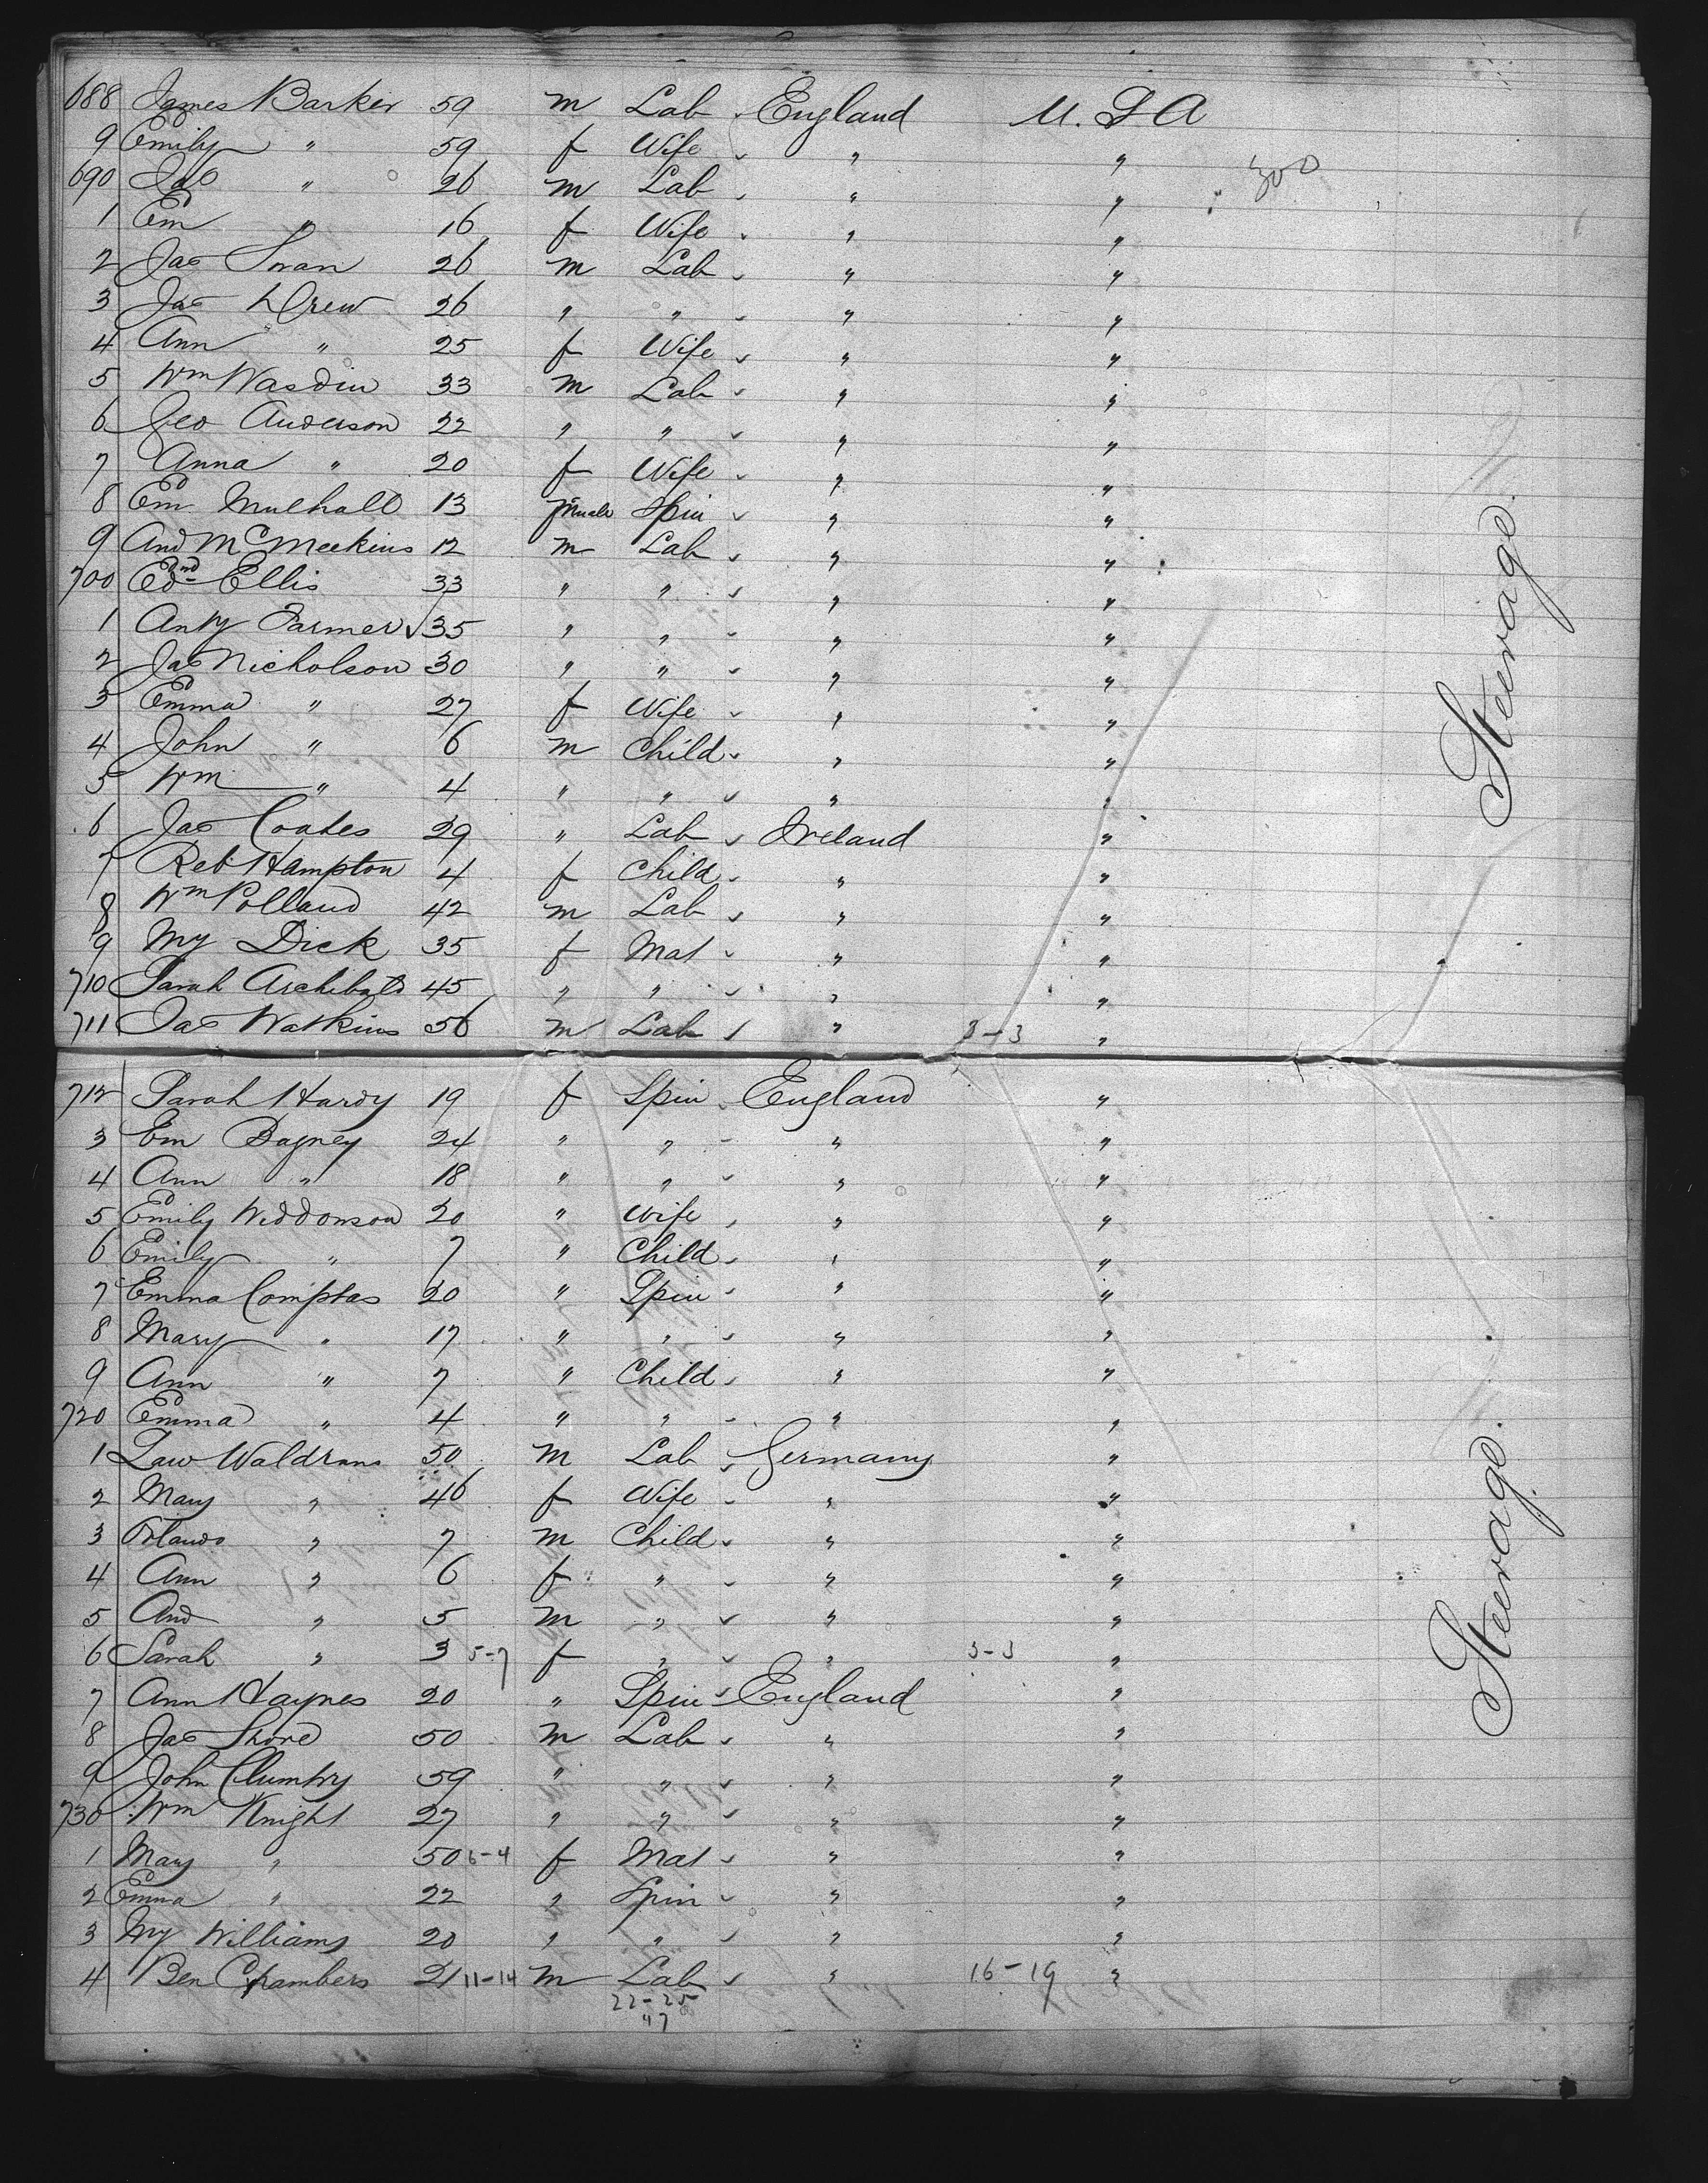 688 James Barker 59 m Lab England U.S.A
9 Emily " 59 f Wife " "
690 Jas " 26 m Lab " " 300
1 Em " 16 f Wife " "
2 Jas Swan 26 m Lab " "
3 Jas Drew 26 " " " "
4 Ann " 25 f Wife " "
5 Wm Wasdin 33 m Lab " "
6 Geo Anderson 22 " " " "
7 Anna " 20 f Wife " "
8 Em Mulhall 13 Spin " "
9 And McMeekins 12 m Lab " "
700 Ednd Ellis 33 " " " "
1 Anty Farmer 35 " " " "
2 Jas Nicholson 30 " " " "
3 Emma " 27 f Wife " "
4 John " 6 m Child " "
5 Wm " 4 " " " "
6 Jas Coates 29 " Lab Ireland "
7 Reb Hampton 4 f Child " "
8 Wm Polland 42 m Lab " "
9 My Dick 35 f Mat " "
710 Sarah Archibald 45 " " " "
711 Jas Watkins 56 m Lab " 3-3 "
Steerage.
712 Sarah Hardy 19 f Spin England "
3 Em Bagney 24 " " " "
4 Ann " 18 " " " "
5 Emily Widdonson 20 " Wife " "
6 Emily " 7 " Child " "
7 Emma Comptas 20 " Spin " "
8 Mary " 17 " " " "
9 Ann " 7 " Child " "
720 Emma " 4 " " " "
1 Law Waldrans 50 m Lab Germany "
2 Mary " 46 f Wife " "
3 Orlando " 7 m Child " "
4 Ann " 6 f " " "
5 And " 5 m " " "
6 Sarah " 3 5-7 f " " 3-3 "
7 Ann Haynes 20 " Spin England "
8 Jas Shore 50 m Lab " "
9 John Clumby 59 " " " "
730 Wm Knight 27 " " " "
1 Mary " 50 6-4 f Mat " "
2 Emma " 22 " Spin " "
3 My Williams 20 " " " "
4 Ben Chambers 21 11-14 m Lab " 16-19 "
22-25
"7
Steerage.